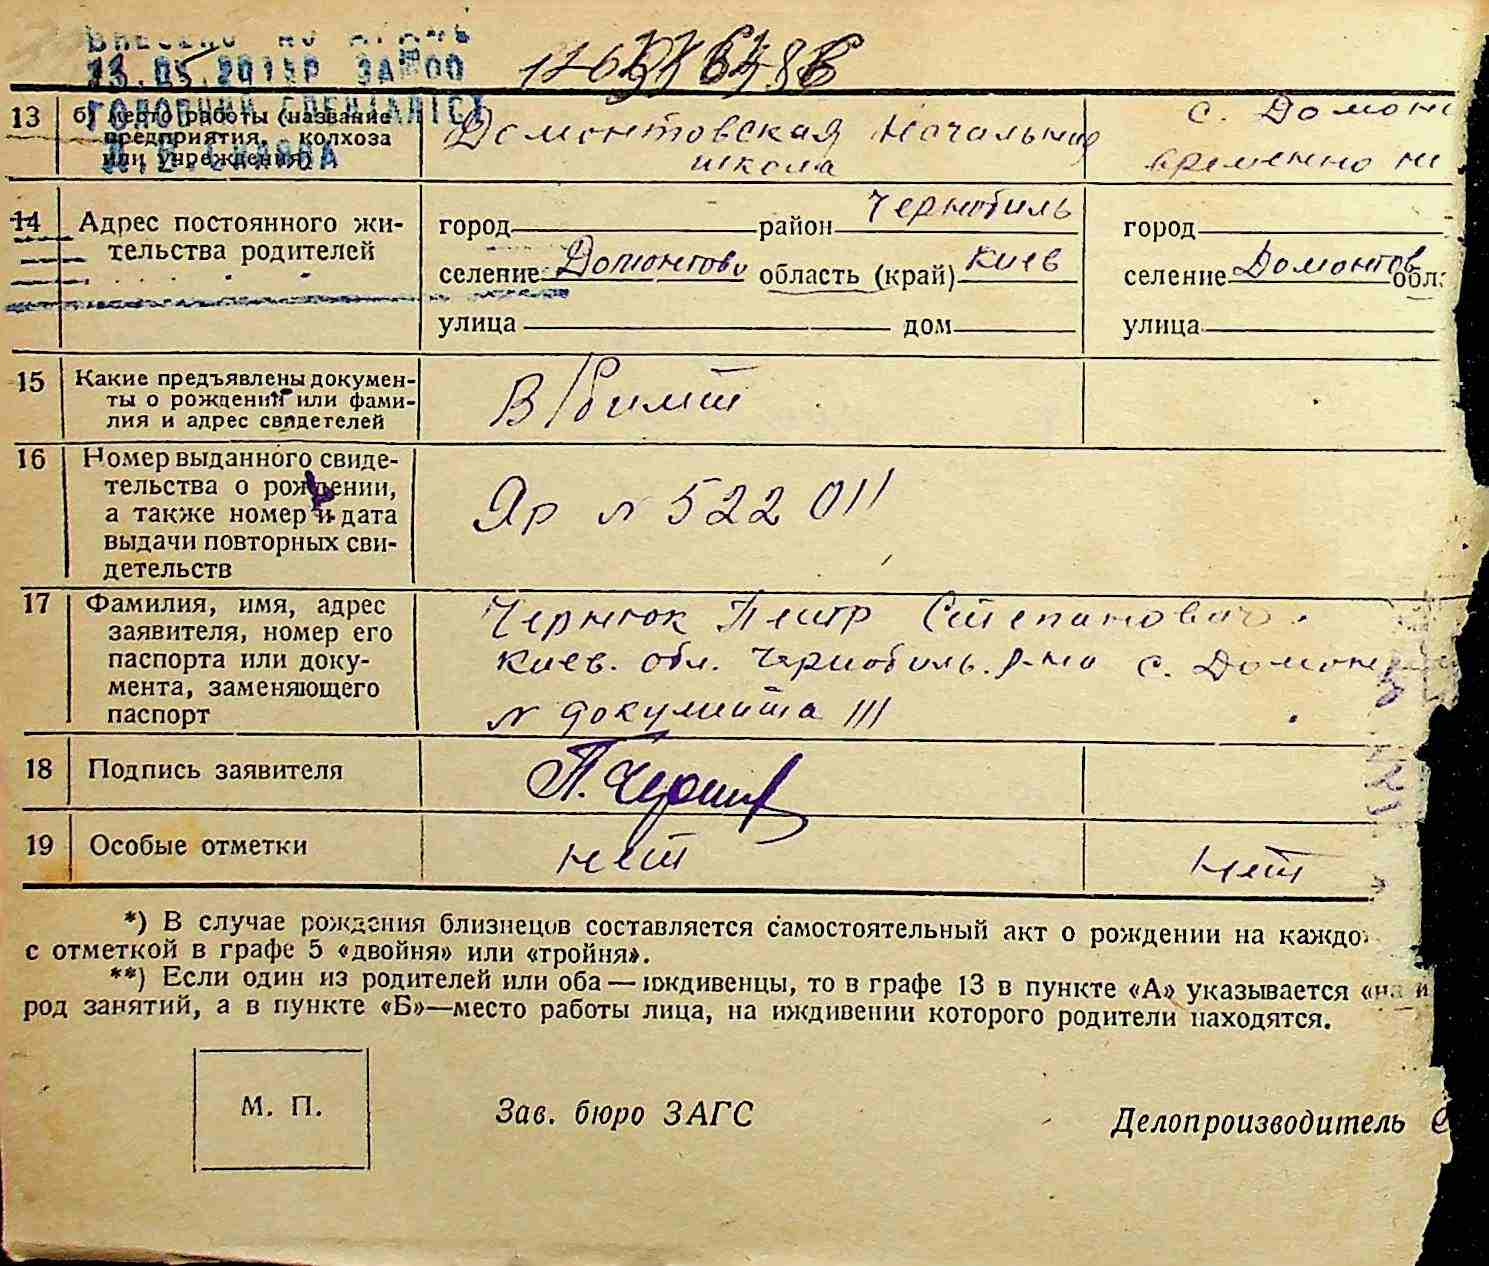 13.05.2015Р ЗА №00
ГОЛОВНИЙ СПЕЦІАЛІСТ
13 б) место работы (название предприятия, колхоза или учреждения)
Домонтовская Начальная школа
с. Домон
временно не
14 Адрес постоянного жительства родителей
город район Чернобиль
селение Домонтово область (край) Киев
улица дом
город
селение Домонтов обл
улица
15 Какие предъявлены документы о рождении или фамилия и адрес свидетелей
16 Номер выданного свидетельства о рождении, а также номер и дата выдачи повторных свидетельств
Яр № 522011
17 Фамилия, имя, адрес заявителя, номер его паспорта или документа, заменяющего паспорт
Петр Степанович
Киев. обл. Чернобиль. р-на с. Домон
№ документа 111
18 Подпись заявителя
19 Особые отметки
нет
нет
*) В случае рождения близнецов составляется самостоятельный акт о рождении на каждо
с отметкой в графе 5 «двойня» или «тройня».
**) Если один из родителей или оба — иждивенцы, то в графе 13 в пункте «А» указывается «на и
род занятий, а в пункте «Б»—место работы лица, на иждивении которого родители находятся.
М. П.
Зав. бюро ЗАГС
Делопроизводитель